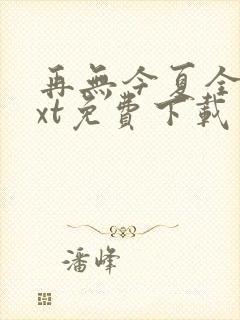 再無今夏全
xt免費下載
潘峰